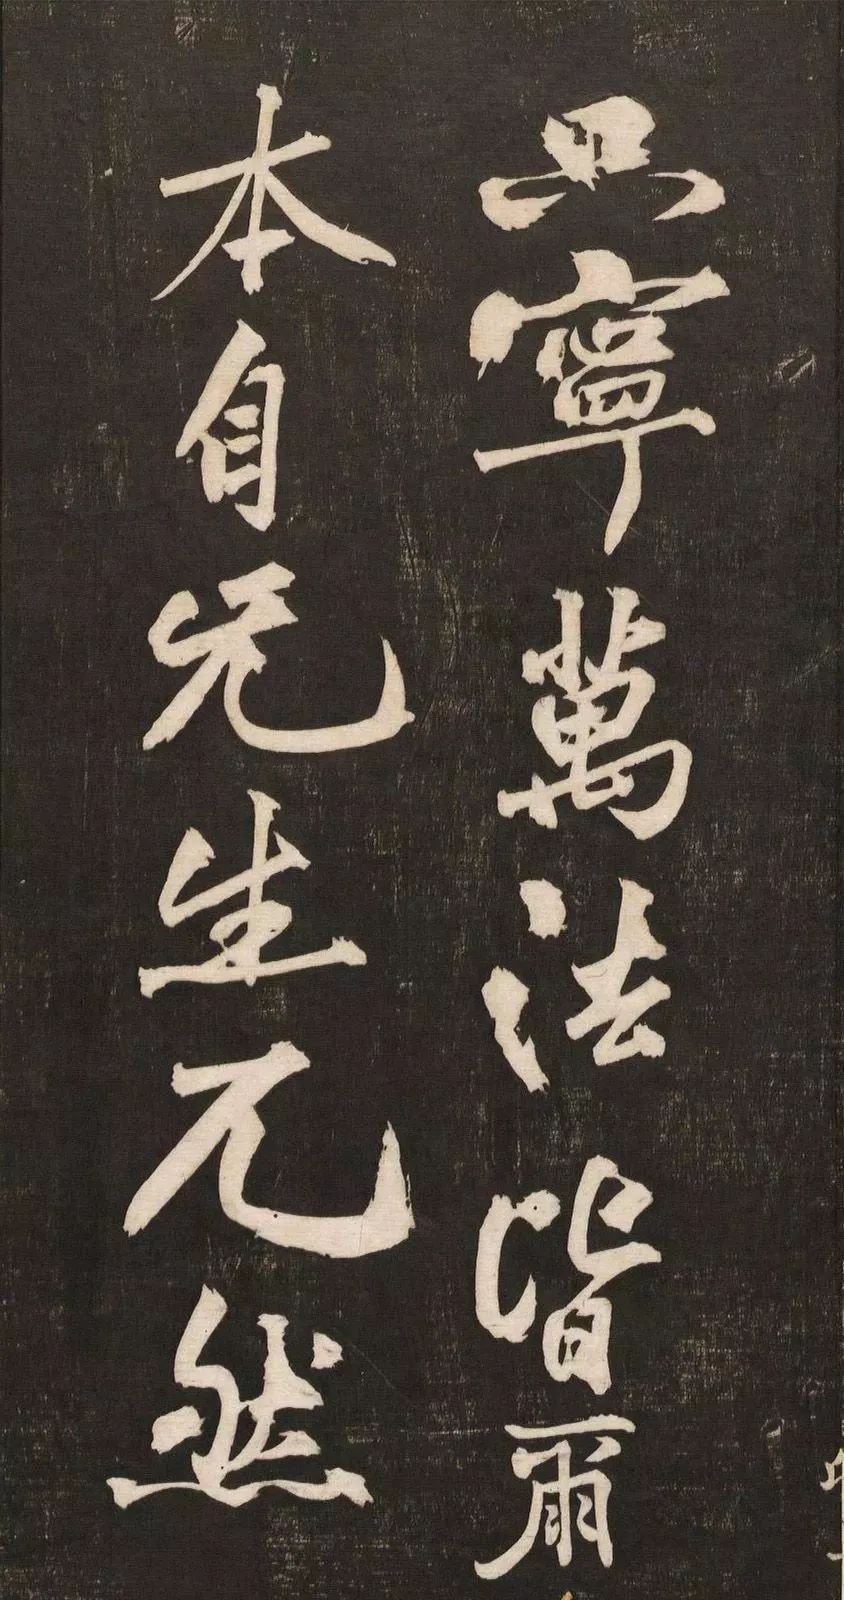 只寧萬法皆爾
本自无生兀然